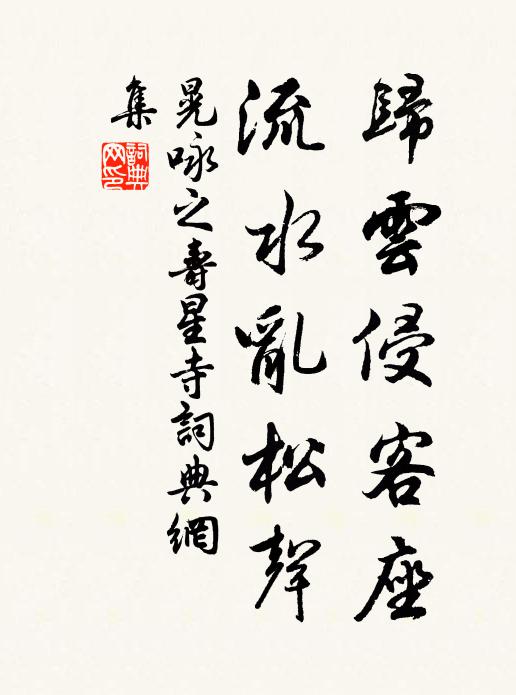 歸雲侵客座
流水亂松聲
晁咏之壽星寺詞典網
集
詞典网印